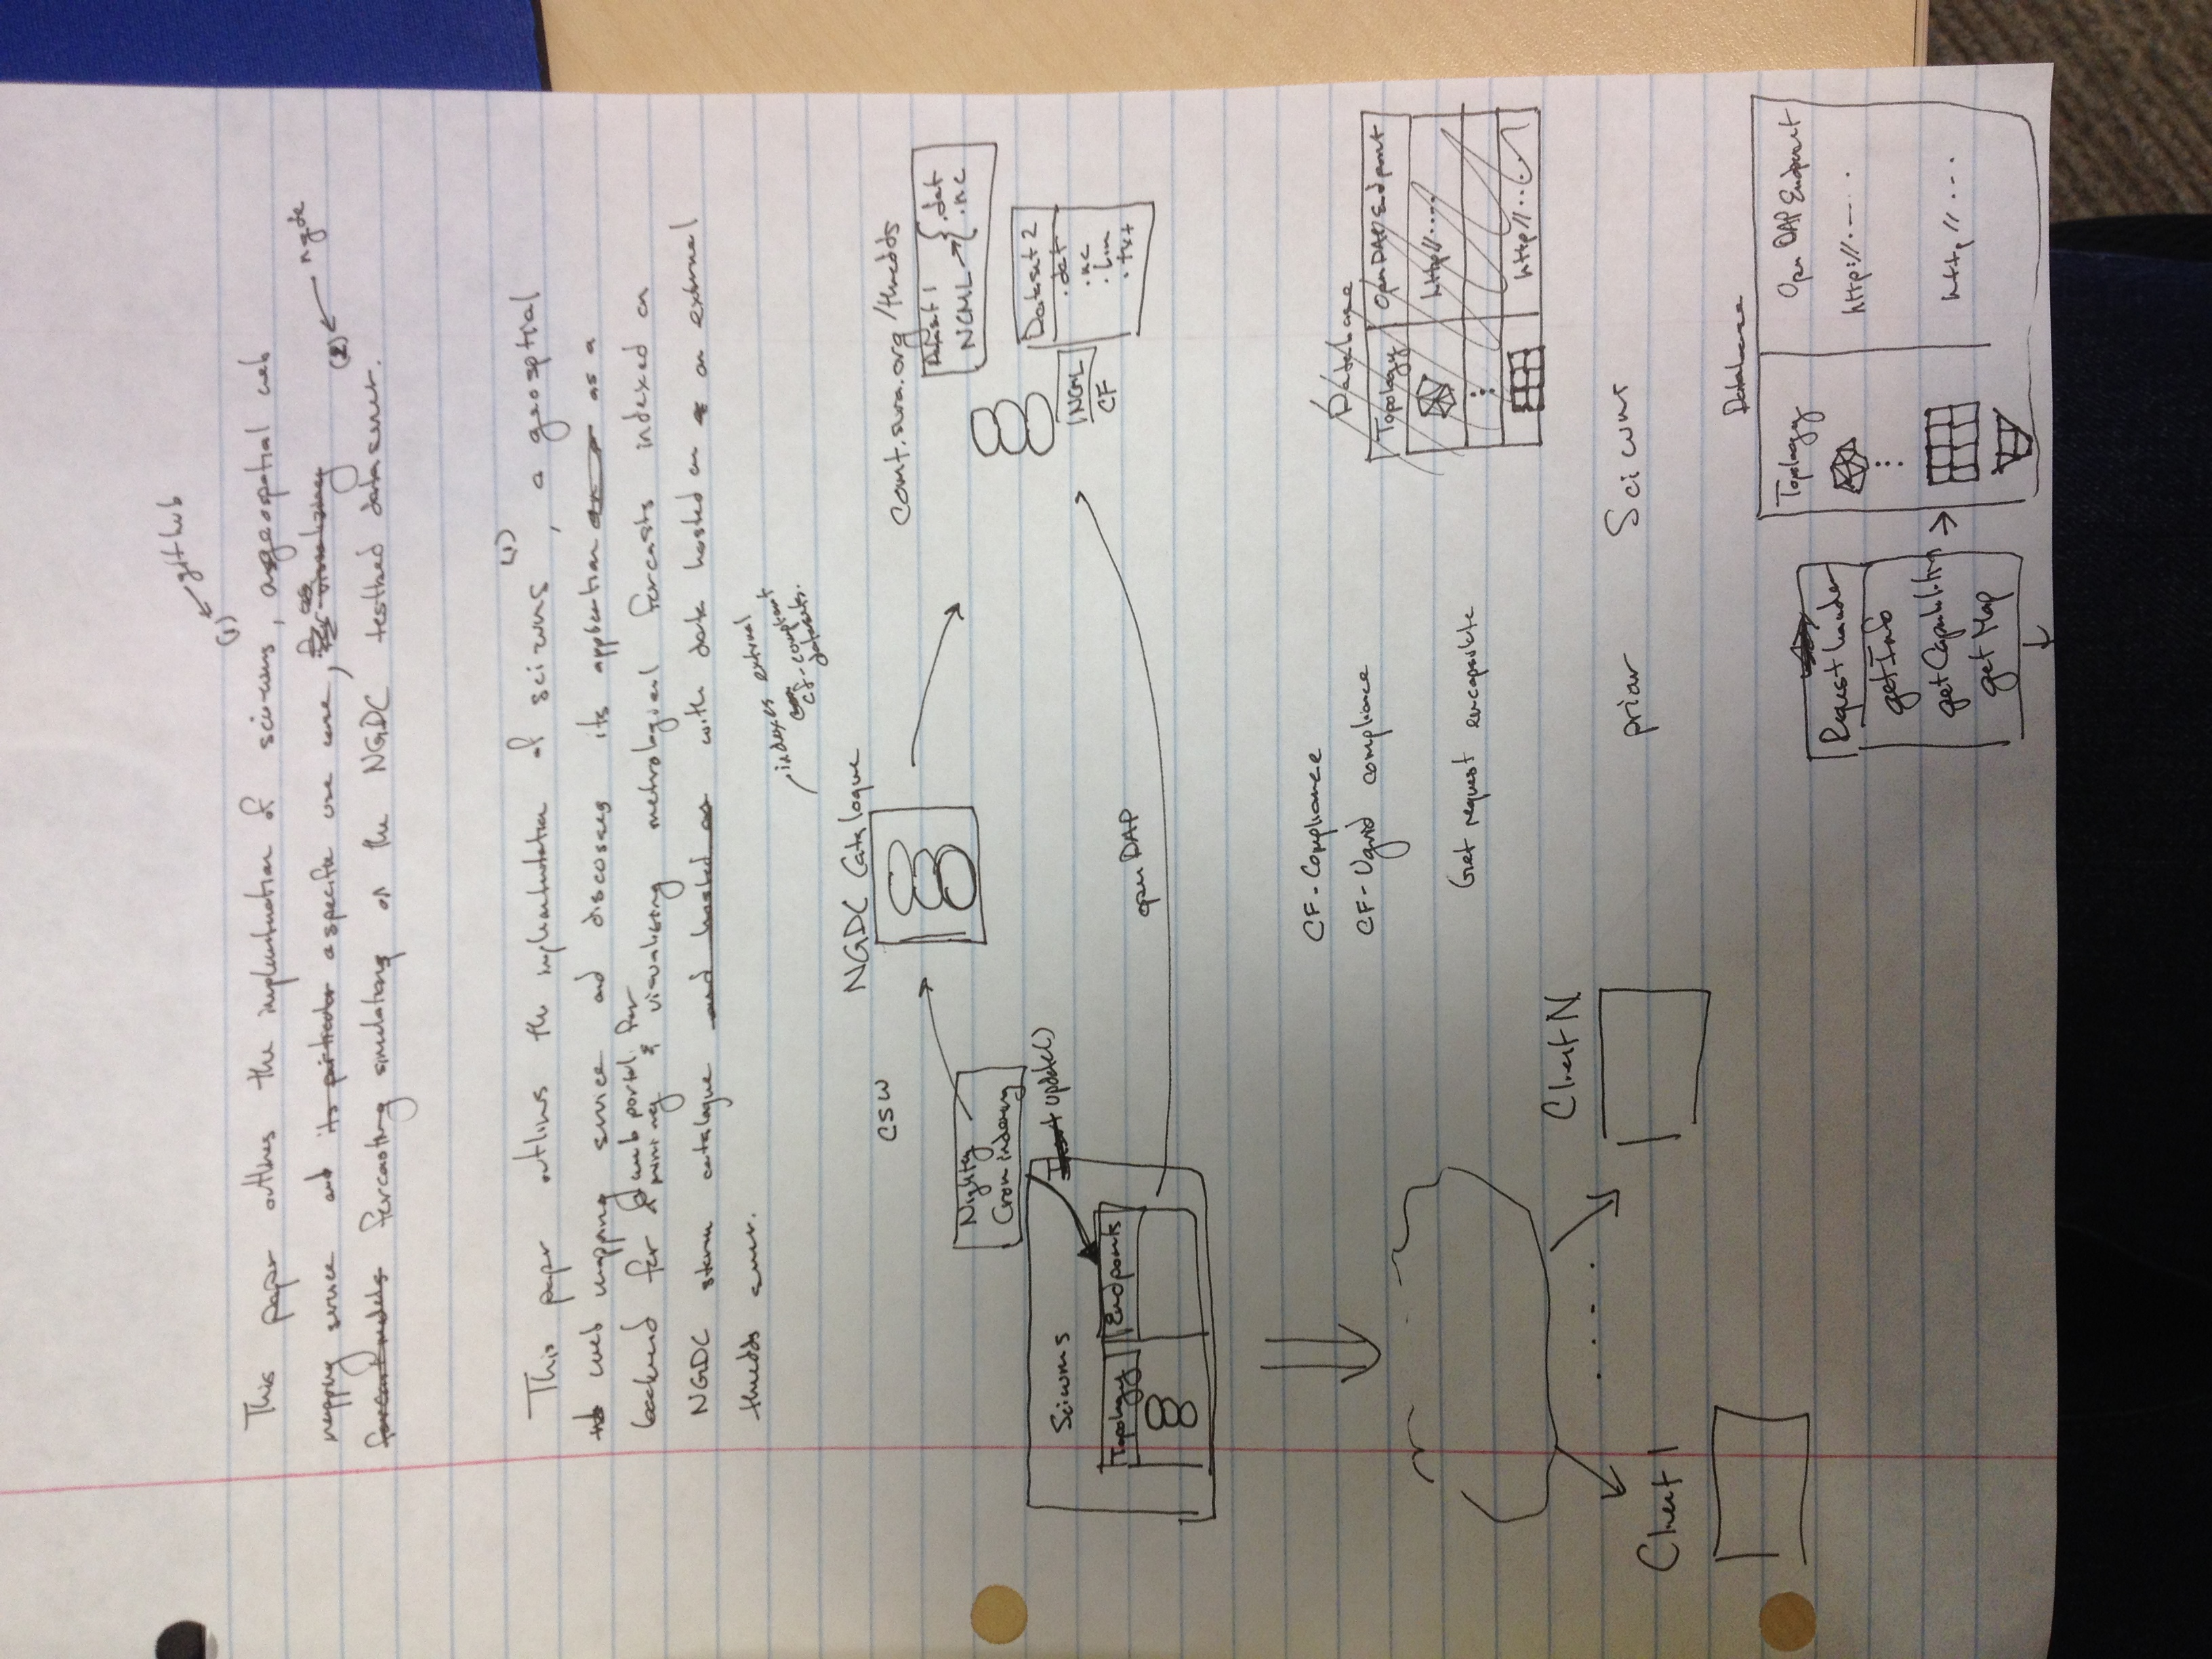 github
(1)
This paper outlines the implementation of sci-wms, a geospatial web
mapping service and its particular a specific use case, for visualizing
(2) ngdc
forecast models forcasting simulations on the NGDC testbed data server.
(1)
This paper outlines the implementation of sciwms, a geosptial
web mapping service and discusses its application as a
a web portal for
backend for mining & visualizing metrological forcasts indexed on
NGDC storm catalogue and hosted on with data hosted on an external
thredds server.
indexes extrnal
CF-compliant
datasets.
NGDC Catalogue
CSW
comt.sura.org/thredds
Dataset 1
.dat
NCML
.nc
Nightly
Cron indexing
update()
Sciwms
Topology
Endpoints
openDAP
NCML
CF
Dataset 2
.dat
.nc
.bin
.txt
CF-Compliance
CF-Ugrid compliance
Get request encapsulate
Database
Topology
OpenDAP Endpoint
http//....
http//....
Client N
Client 1
prior Sciwms
Database
Request handler
getInfo
getCapabilities
getMap
Topology
OpenDAP Endpoint
http://....
http//...